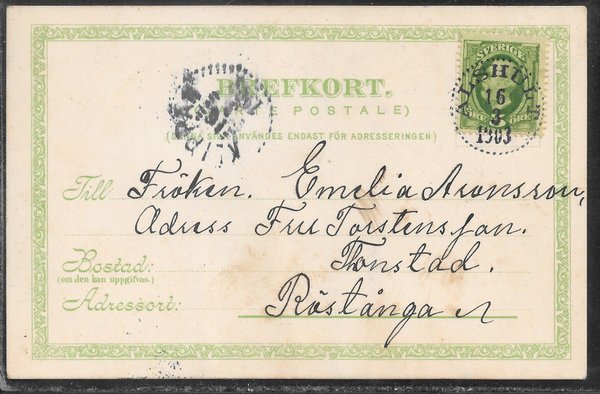 BREFKORT.
(CARTE POSTALE)
(DENNA SIDA ANVÄNDES ENDAST FÖR ADRESSERINGEN)
SVERIGE
16
3
1903
ÖRE
Till Fröken. Emelia Aronsson,
Adress Fru Torstensson.
Tonstad.
Bostad:
(om den kan uppgifvas.)
Adressort: Röstånga